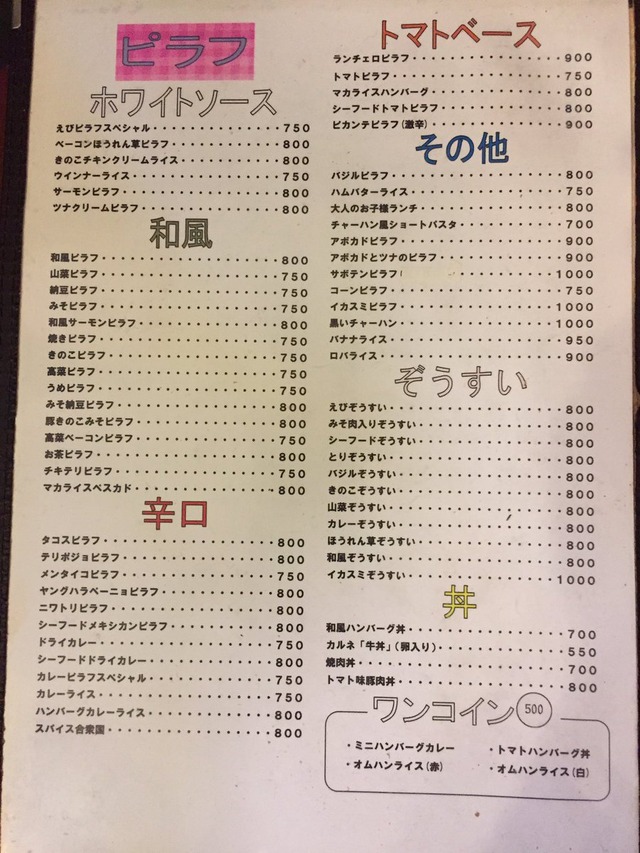 ピラフ
ホワイトソース
えびピラフスペシャル・・・・・・・・・・・・・・750
ベーコンほうれん草ピラフ・・・・・・・・・・・・800
きのこチキンクリームライス・・・・・・・・・・・800
ウインナーライス・・・・・・・・・・・・・・・・750
サーモンピラフ・・・・・・・・・・・・・・・・・800
ツナクリームピラフ・・・・・・・・・・・・・・・800
和風
和風ピラフ・・・・・・・・・・・・・・・・・・・800
山菜ピラフ・・・・・・・・・・・・・・・・・・・750
納豆ピラフ・・・・・・・・・・・・・・・・・・・750
みそピラフ・・・・・・・・・・・・・・・・・・・750
和風サーモンピラフ・・・・・・・・・・・・・・・800
焼きピラフ・・・・・・・・・・・・・・・・・・・750
きのこピラフ・・・・・・・・・・・・・・・・・・750
高菜ピラフ・・・・・・・・・・・・・・・・・・・750
うめピラフ・・・・・・・・・・・・・・・・・・・750
みそ納豆ピラフ・・・・・・・・・・・・・・・・・800
豚きのこみそピラフ・・・・・・・・・・・・・・・800
高菜ベーコンピラフ・・・・・・・・・・・・・・・750
お茶ピラフ・・・・・・・・・・・・・・・・・・・800
チキテリピラフ・・・・・・・・・・・・・・・・・750
マカライスペスカド・・・・・・・・・・・・・・・800
辛口
タコスピラフ・・・・・・・・・・・・・・・・・・800
テリポジョピラフ・・・・・・・・・・・・・・・・800
メンタイコピラフ・・・・・・・・・・・・・・・・750
ヤングハラペーニョピラフ・・・・・・・・・・・・800
ニワトリピラフ・・・・・・・・・・・・・・・・・800
シーフードメキシカンピラフ・・・・・・・・・・・800
ドライカレー・・・・・・・・・・・・・・・・・・750
シーフードドライカレー・・・・・・・・・・・・・800
カレーピラフスペシャル・・・・・・・・・・・・・750
カレーライス・・・・・・・・・・・・・・・・・・750
ハンバーグカレーライス・・・・・・・・・・・・・800
スパイス合衆国・・・・・・・・・・・・・・・・・800
トマトベース
ランチェロピラフ・・・・・・・・・・・・・・・・900
トマトピラフ・・・・・・・・・・・・・・・・・・750
マカライスハンバーグ・・・・・・・・・・・・・・800
シーフードトマトピラフ・・・・・・・・・・・・・800
ピカンテピラフ(激辛)・・・・・・・・・・・・・・900
その他
バジルピラフ・・・・・・・・・・・・・・・・・・800
ハムバターライス・・・・・・・・・・・・・・・・750
大人のお子様ランチ・・・・・・・・・・・・・・・800
チャーハン風ショートパスタ・・・・・・・・・・・700
アボカドピラフ・・・・・・・・・・・・・・・・・900
アボカドとツナのピラフ・・・・・・・・・・・・・900
サボテンピラフ・・・・・・・・・・・・・・・・・1000
コーンピラフ・・・・・・・・・・・・・・・・・・750
イカスミピラフ・・・・・・・・・・・・・・・・・1000
黒いチャーハン・・・・・・・・・・・・・・・・・1000
バナナライス・・・・・・・・・・・・・・・・・・950
ロバライス・・・・・・・・・・・・・・・・・・・900
ぞうすい
えびぞうすい・・・・・・・・・・・・・・・・・・800
みそ肉入りぞうすい・・・・・・・・・・・・・・・800
シーフードぞうすい・・・・・・・・・・・・・・・800
とりぞうすい・・・・・・・・・・・・・・・・・・800
バジルぞうすい・・・・・・・・・・・・・・・・・800
きのこぞうすい・・・・・・・・・・・・・・・・・800
山菜ぞうすい・・・・・・・・・・・・・・・・・・800
カレーぞうすい・・・・・・・・・・・・・・・・・800
ほうれん草ぞうすい・・・・・・・・・・・・・・・800
和風ぞうすい・・・・・・・・・・・・・・・・・・800
イカスミぞうすい・・・・・・・・・・・・・・・・1000
丼
和風ハンバーグ丼・・・・・・・・・・・・・・・・700
カルネ「牛丼」(卵入り)・・・・・・・・・・・・・550
焼肉丼・・・・・・・・・・・・・・・・・・・・・700
トマト味豚肉丼・・・・・・・・・・・・・・・・・800
ワンコイン 500
・ミニハンバーグカレー ・トマトハンバーグ丼
・オムハンライス(赤) ・オムハンライス(白)